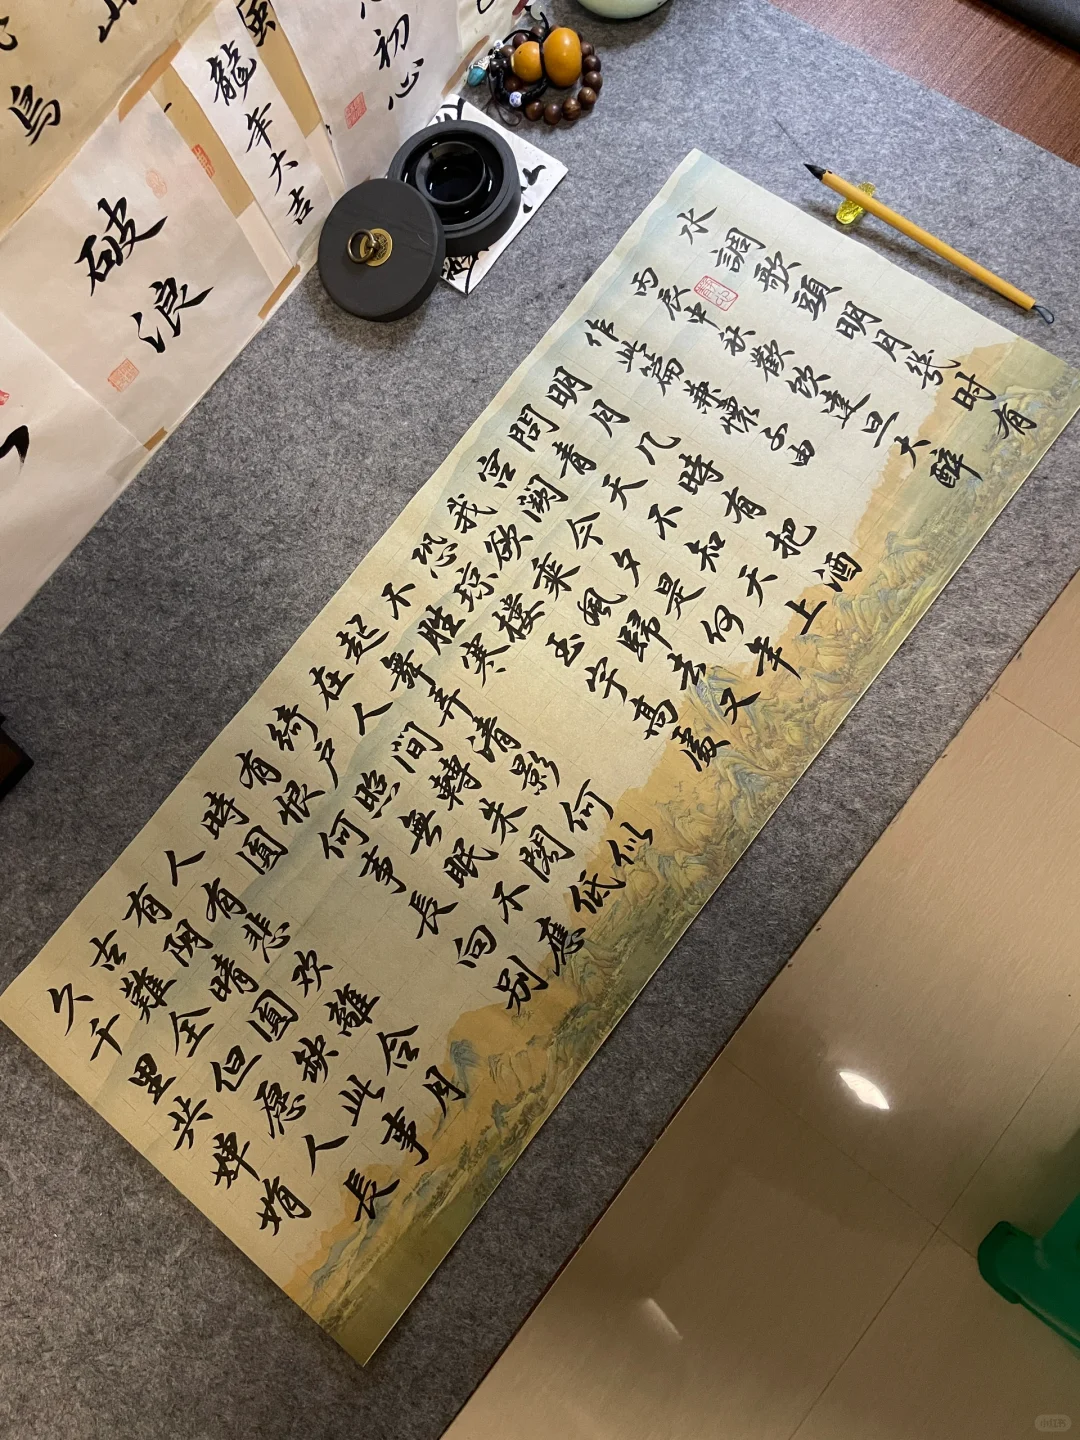 水調歌頭明月幾时有
丙辰中秋歡饮達旦大醉
作此篇兼懷子由
明月几時有把酒
問青天不知天上
宫阙今夕是何年
我欲乘風歸去又
恐琼楼玉宇高處
不胜寒
起舞弄清影何似
在人間轉朱閣低
綺户照無眠不應
有恨何事長向别
時圓
人有悲欢離合月
有阴晴圓缺此事
古難全但愿人長
久千里共婵娟
初心
龍年大吉
破浪
鳥